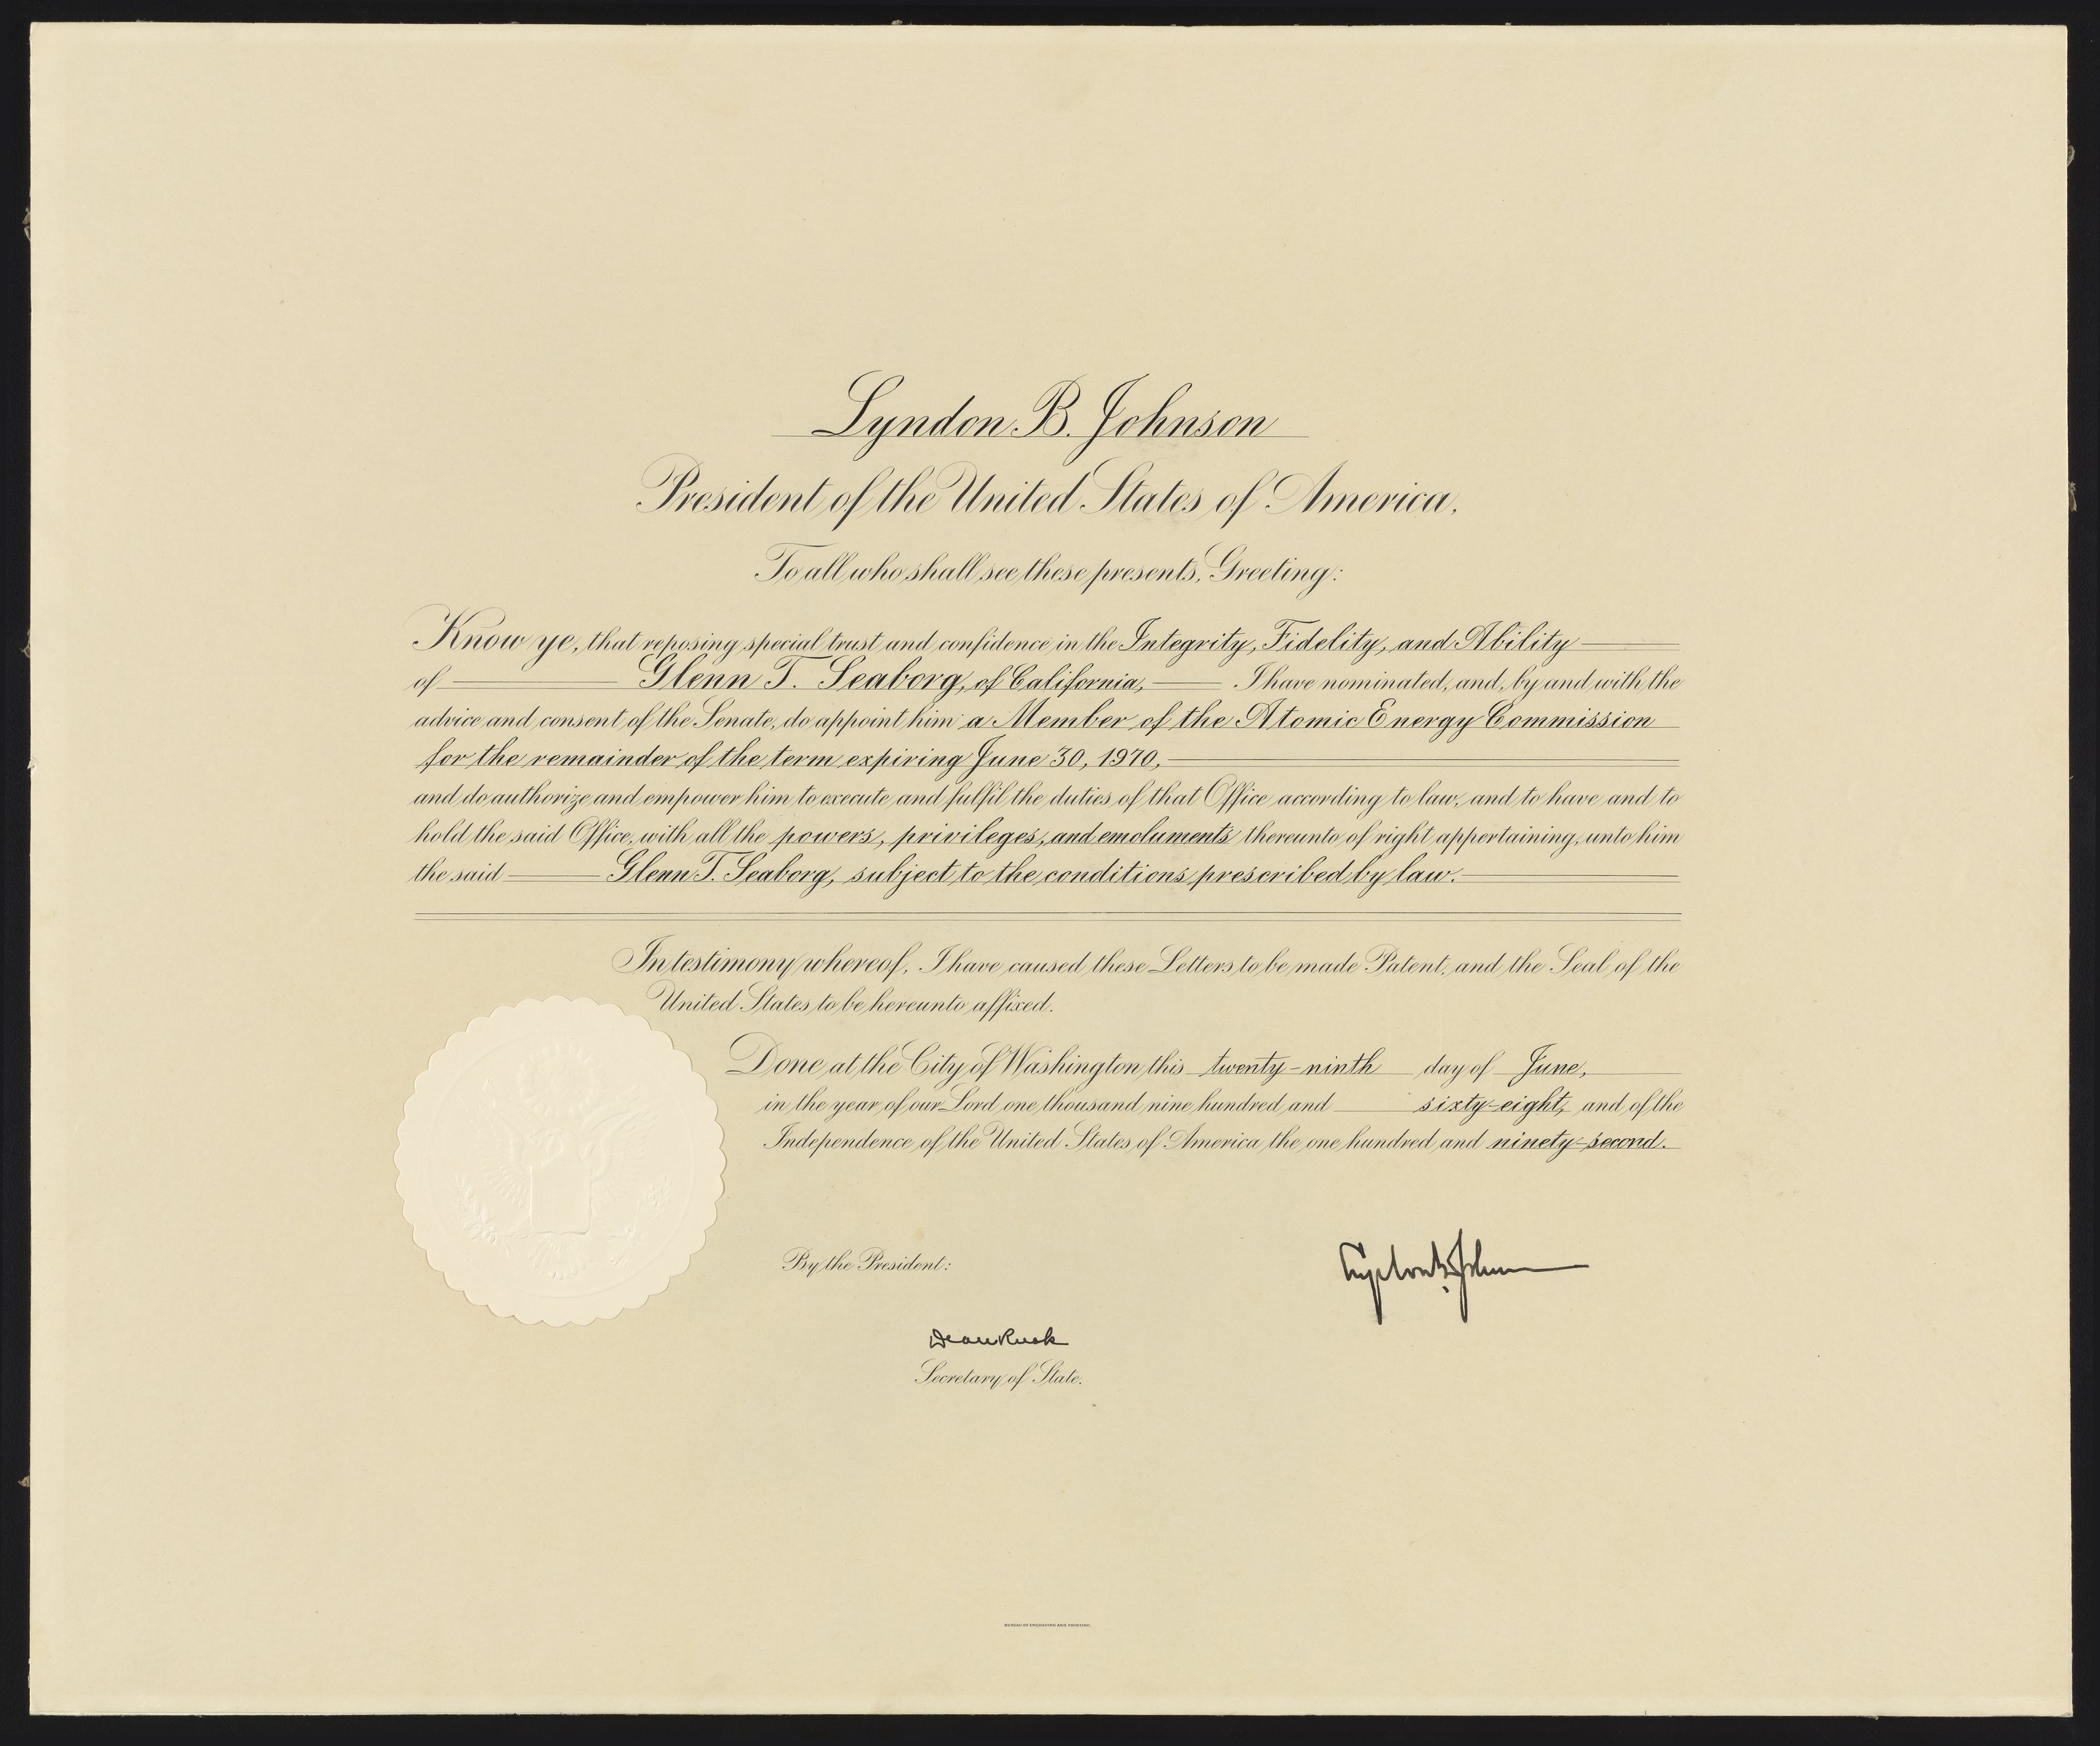 Lyndon B. Johnson
President of the United States of America.
To all who shall see these presents, Greeting:
Know ye, that reposing special trust and confidence in the Integrity, Fidelity, and Ability
of Glenn T. Seaborg, of California, I have nominated, and, by and with the
advice and consent of the Senate, do appoint him a Member of the Atomic Energy Commission
for the remainder of the term expiring June 30, 1970,
and do authorize and empower him to execute and fulfil the duties of that Office according to law, and to have and to
hold the said Office, with all the powers, privileges, and emoluments thereunto of right appertaining, unto him
the said Glenn T. Seaborg, subject to the conditions prescribed by law.
In testimony whereof, I have caused these Letters to be made Patent, and the Seal of the
United States to be hereunto affixed.
Done at the City of Washington this twenty-ninth day of June,
in the year of our Lord one thousand nine hundred and sixty-eight, and of the
Independence of the United States of America the one hundred and ninety-second.
By the President:
Lyndon B. Johnson
Dean Rusk
Secretary of State.
BUREAU OF ENGRAVING AND PRINTING.